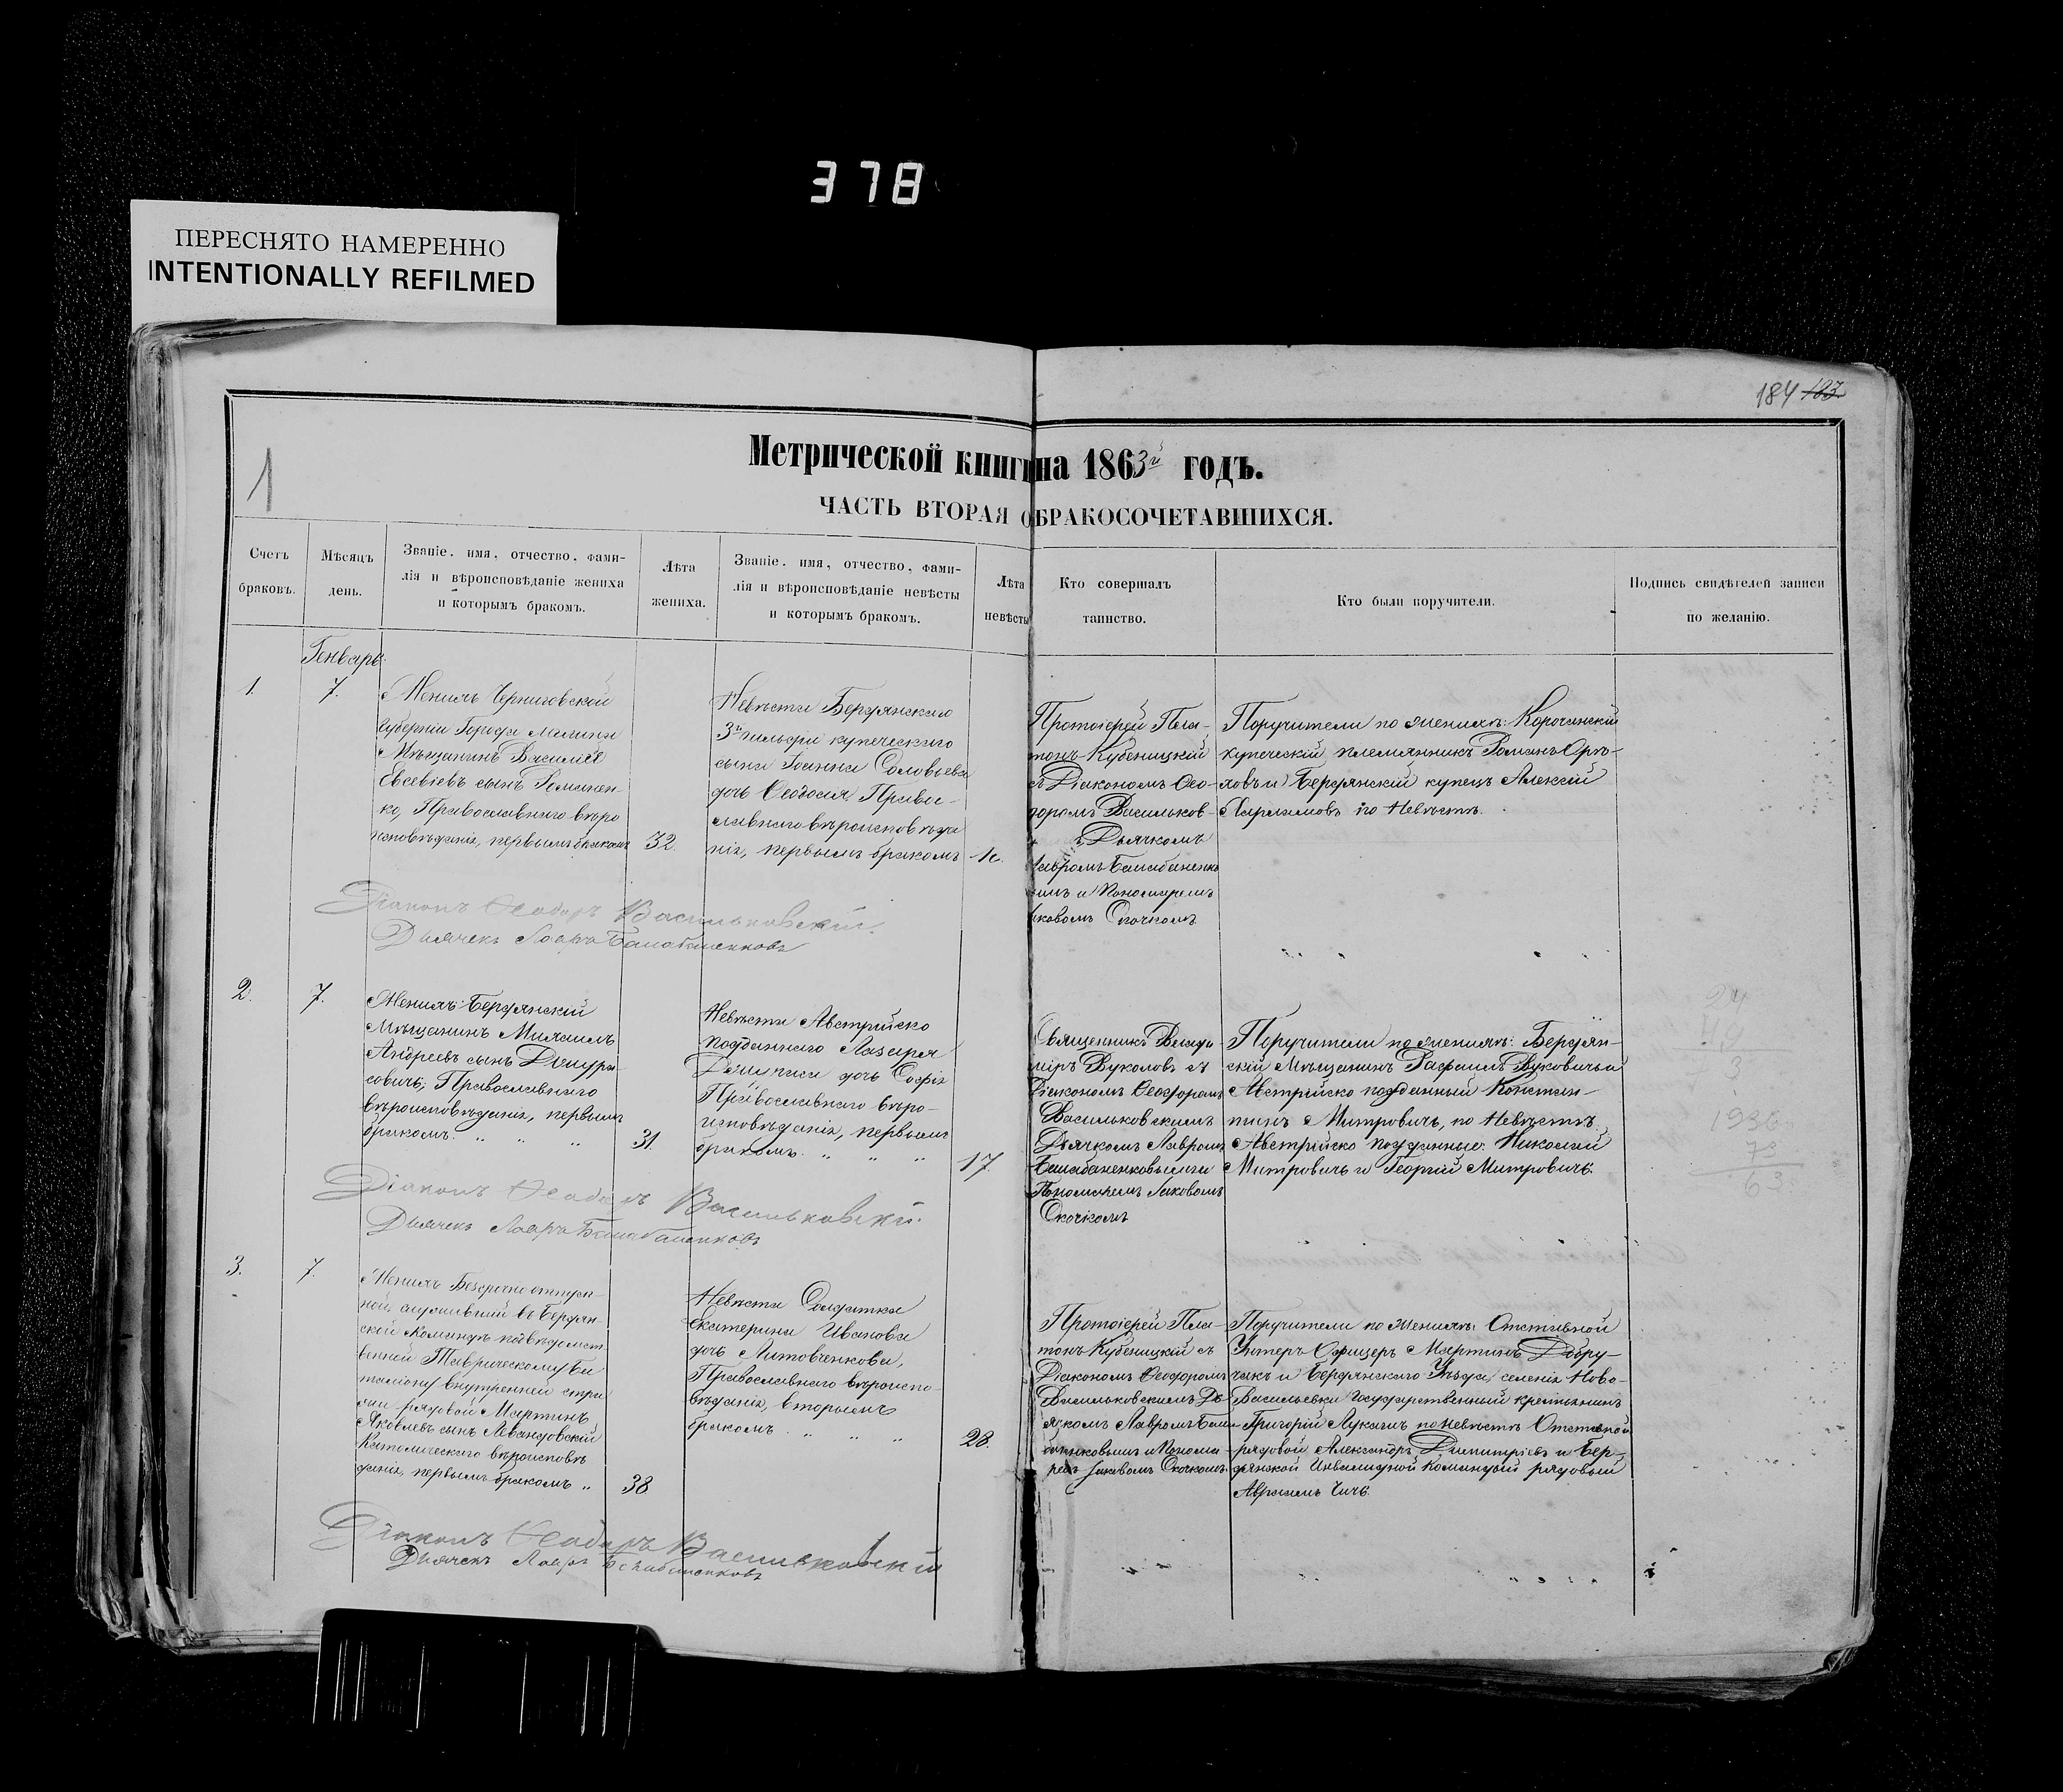 378
ПЕРЕСНЯТО НАМЕРЕННО
INTENTIONALLY REFILMED
184 103.
1
Метрической книги на 1863й годъ.
ЧАСТЬ ВТОРАЯ О БРАКОСОЧЕТАВШИХСЯ.
Счетъ
браковъ.
Мѣсяцъ
день.
Званіе, имя, отчество, фами-
лія и вѣроисповѣданіе жениха
и которымъ бракомъ.
Лѣта
жениха.
Званіе, имя, отчество, фами-
лія и вѣроисповѣданіе невѣсты
и которымъ бракомъ.
Лѣта
невѣсты
Кто совершалъ
таинство.
Кто были поручители.
Подпись свидѣтелей записи
по желанію.
Генварь.
1.
7.
Женихъ Черниговской
Губерніи Города
Мѣщанинъ Василій
Евсевіевъ сынъ Романен-
ко, Православнаго вѣро
исповѣданія, первымъ бракомъ
32.
Невѣста Бердянскаго
3й гильдіи купеческаго
сына Іоанна Соловьева
дочь Ѳеодосія, Право-
славнаго вѣроисповѣда
нія, первымъ бракомъ
Протоіерей Пла-
тонъ Кубеницкій
съ Діакономъ Ѳео-
доромъ Васильков-
Дьячкомъ
Лавромъ Балабаненко
вымъ и Пономаремъ
Яковомъ Скочкомъ
Поручители по женихѣ: Корочанскій
купеческій племянникъ Романъ Орѣ-
ховъ и Бердянскій купецъ Алексій
по Невѣстѣ.
Діаконъ Ѳеодоръ Васильковскій.
Дьячекъ Лавръ Балабаненковъ
2.
7.
Женихъ: Бердянскій
Мѣщанинъ Михаилъ
Андреевъ сынъ
Православнаго
вѣроисповѣданія, первымъ
бракомъ. " " "
31.
Невѣста Австрійско
подданнаго Лазаря
дочь Софія
Православнаго вѣро-
исповѣданія, первымъ
бракомъ. " " "
17.
Священникъ Влади
міръ Вуколовъ съ
Діакономъ Ѳеодоромъ
Васильковскимъ
Дьячкомъ Лавромъ
Балабаненковымъ и
Пономаремъ Яковомъ
Скочкомъ
Поручители по женихѣ: Бердян-
скій Мѣщанинъ Рафаилъ Вуковичъ и
Австрійско подданный Констан-
тинъ Митровичъ, по Невѣстѣ:
Австрійско подданные: Николай
Митровичъ и Георгій Митровичъ.
1936
73
63
Діаконъ Ѳеодоръ Васильковскій.
Дьячекъ Лавръ Балабаненковъ
3.
7.
Женихъ Безсрочно отпуск-
ной, служившій въ Бердян-
ской Командѣ подвѣдомст
венной Таврическому Ба
таліону внутренней стра
жи рядовой Мартинъ
Яковлевъ сынъ Левандовскій
Католическаго вѣроисповѣ
данія, первымъ бракомъ "
38
Невѣста Солдатка
Екатерина Иванова
дочь Литовченкова,
Православнаго вѣроиспо-
вѣданія, вторымъ
бракомъ. " " "
28.
Протоіерей Пла-
тонъ Кубеницкій съ
Діакономъ Ѳеодоромъ
Васильковскимъ Дь-
ячкомъ Лавромъ Бала-
баненковымъ и Понома
ремъ Яковомъ Скочкомъ.
Поручители по женихѣ: Отставной
Унтеръ Офицеръ Мартинъ Добру-
чакъ и Бердянскаго Уѣзда, селенія Ново-
Васильевки Государственный крестьянинъ
Григорій Лукашъ по Невѣстѣ Отставной
рядовой Александръ Димитріевъ и Бер-
дянской Инвалидной Команды рядовый
Авраамъ Чичъ.
Діаконъ Ѳеодоръ Васильковскій
Дьячекъ Лавръ Балабаненковъ